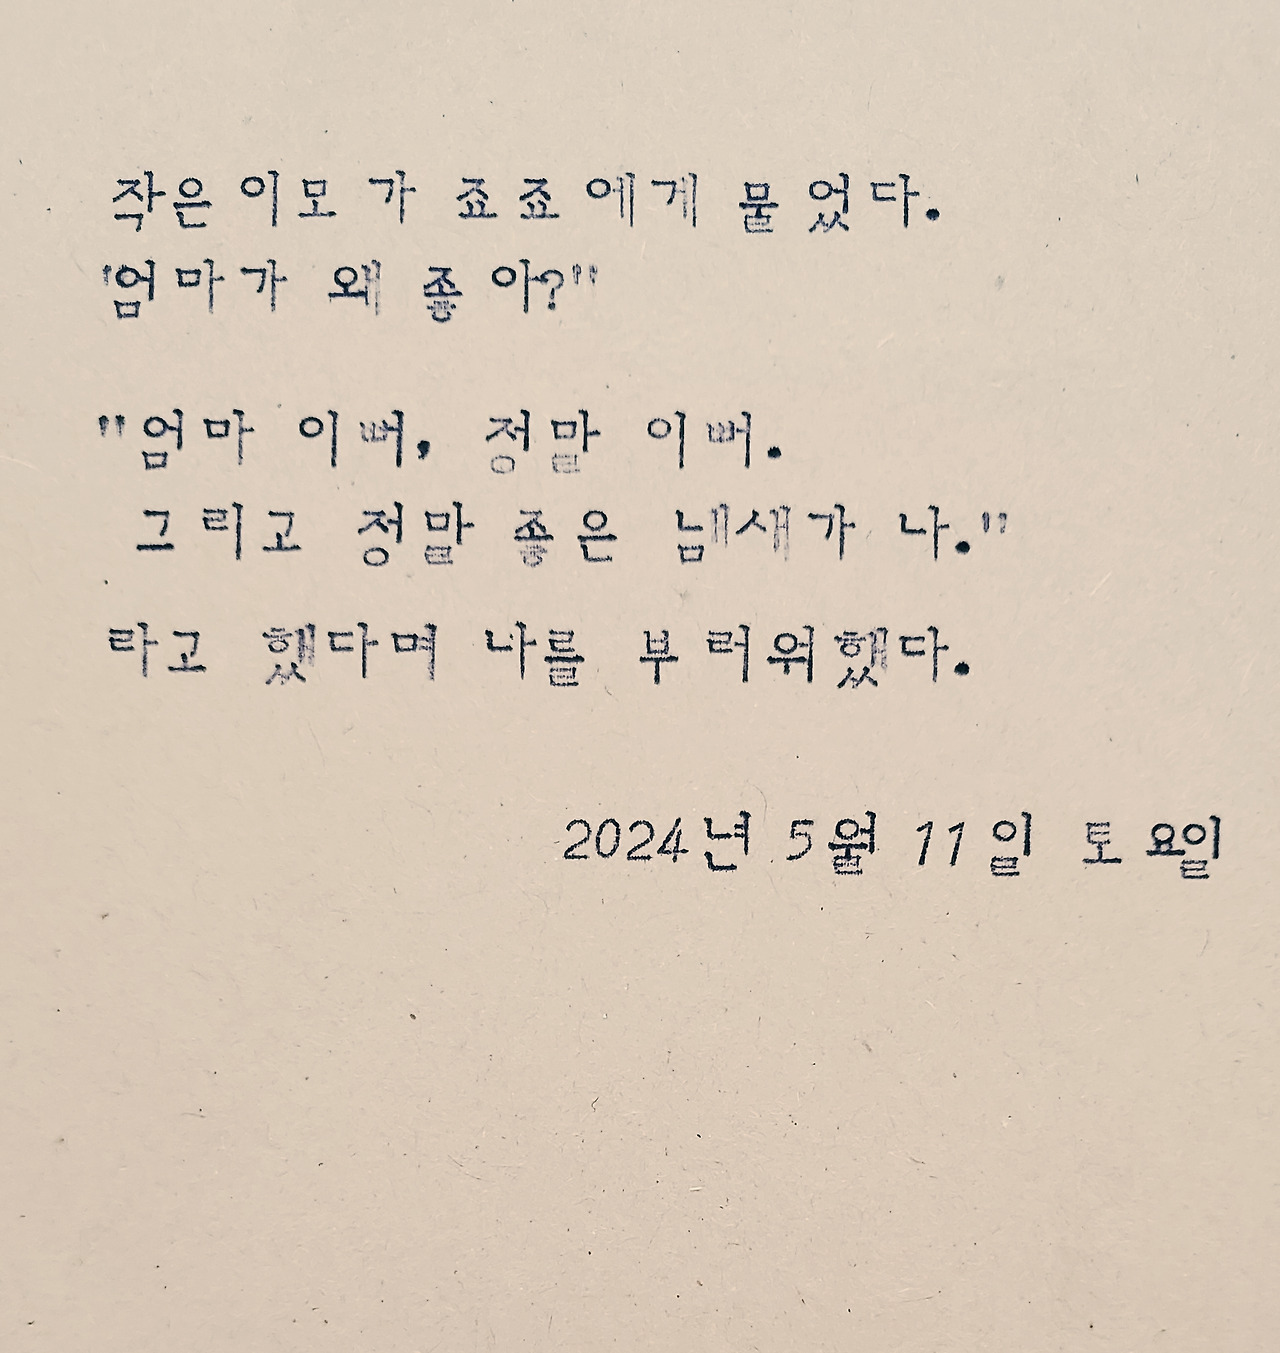 작은 이모가 죠죠에게 물었다.
"엄마가 왜 좋아?"
"엄마 이뻐, 정말 이뻐.
그리고 정말 좋은 냄새가 나."
라고 했다며 나를 부러워했다.
2024년 5월 11일 토요일